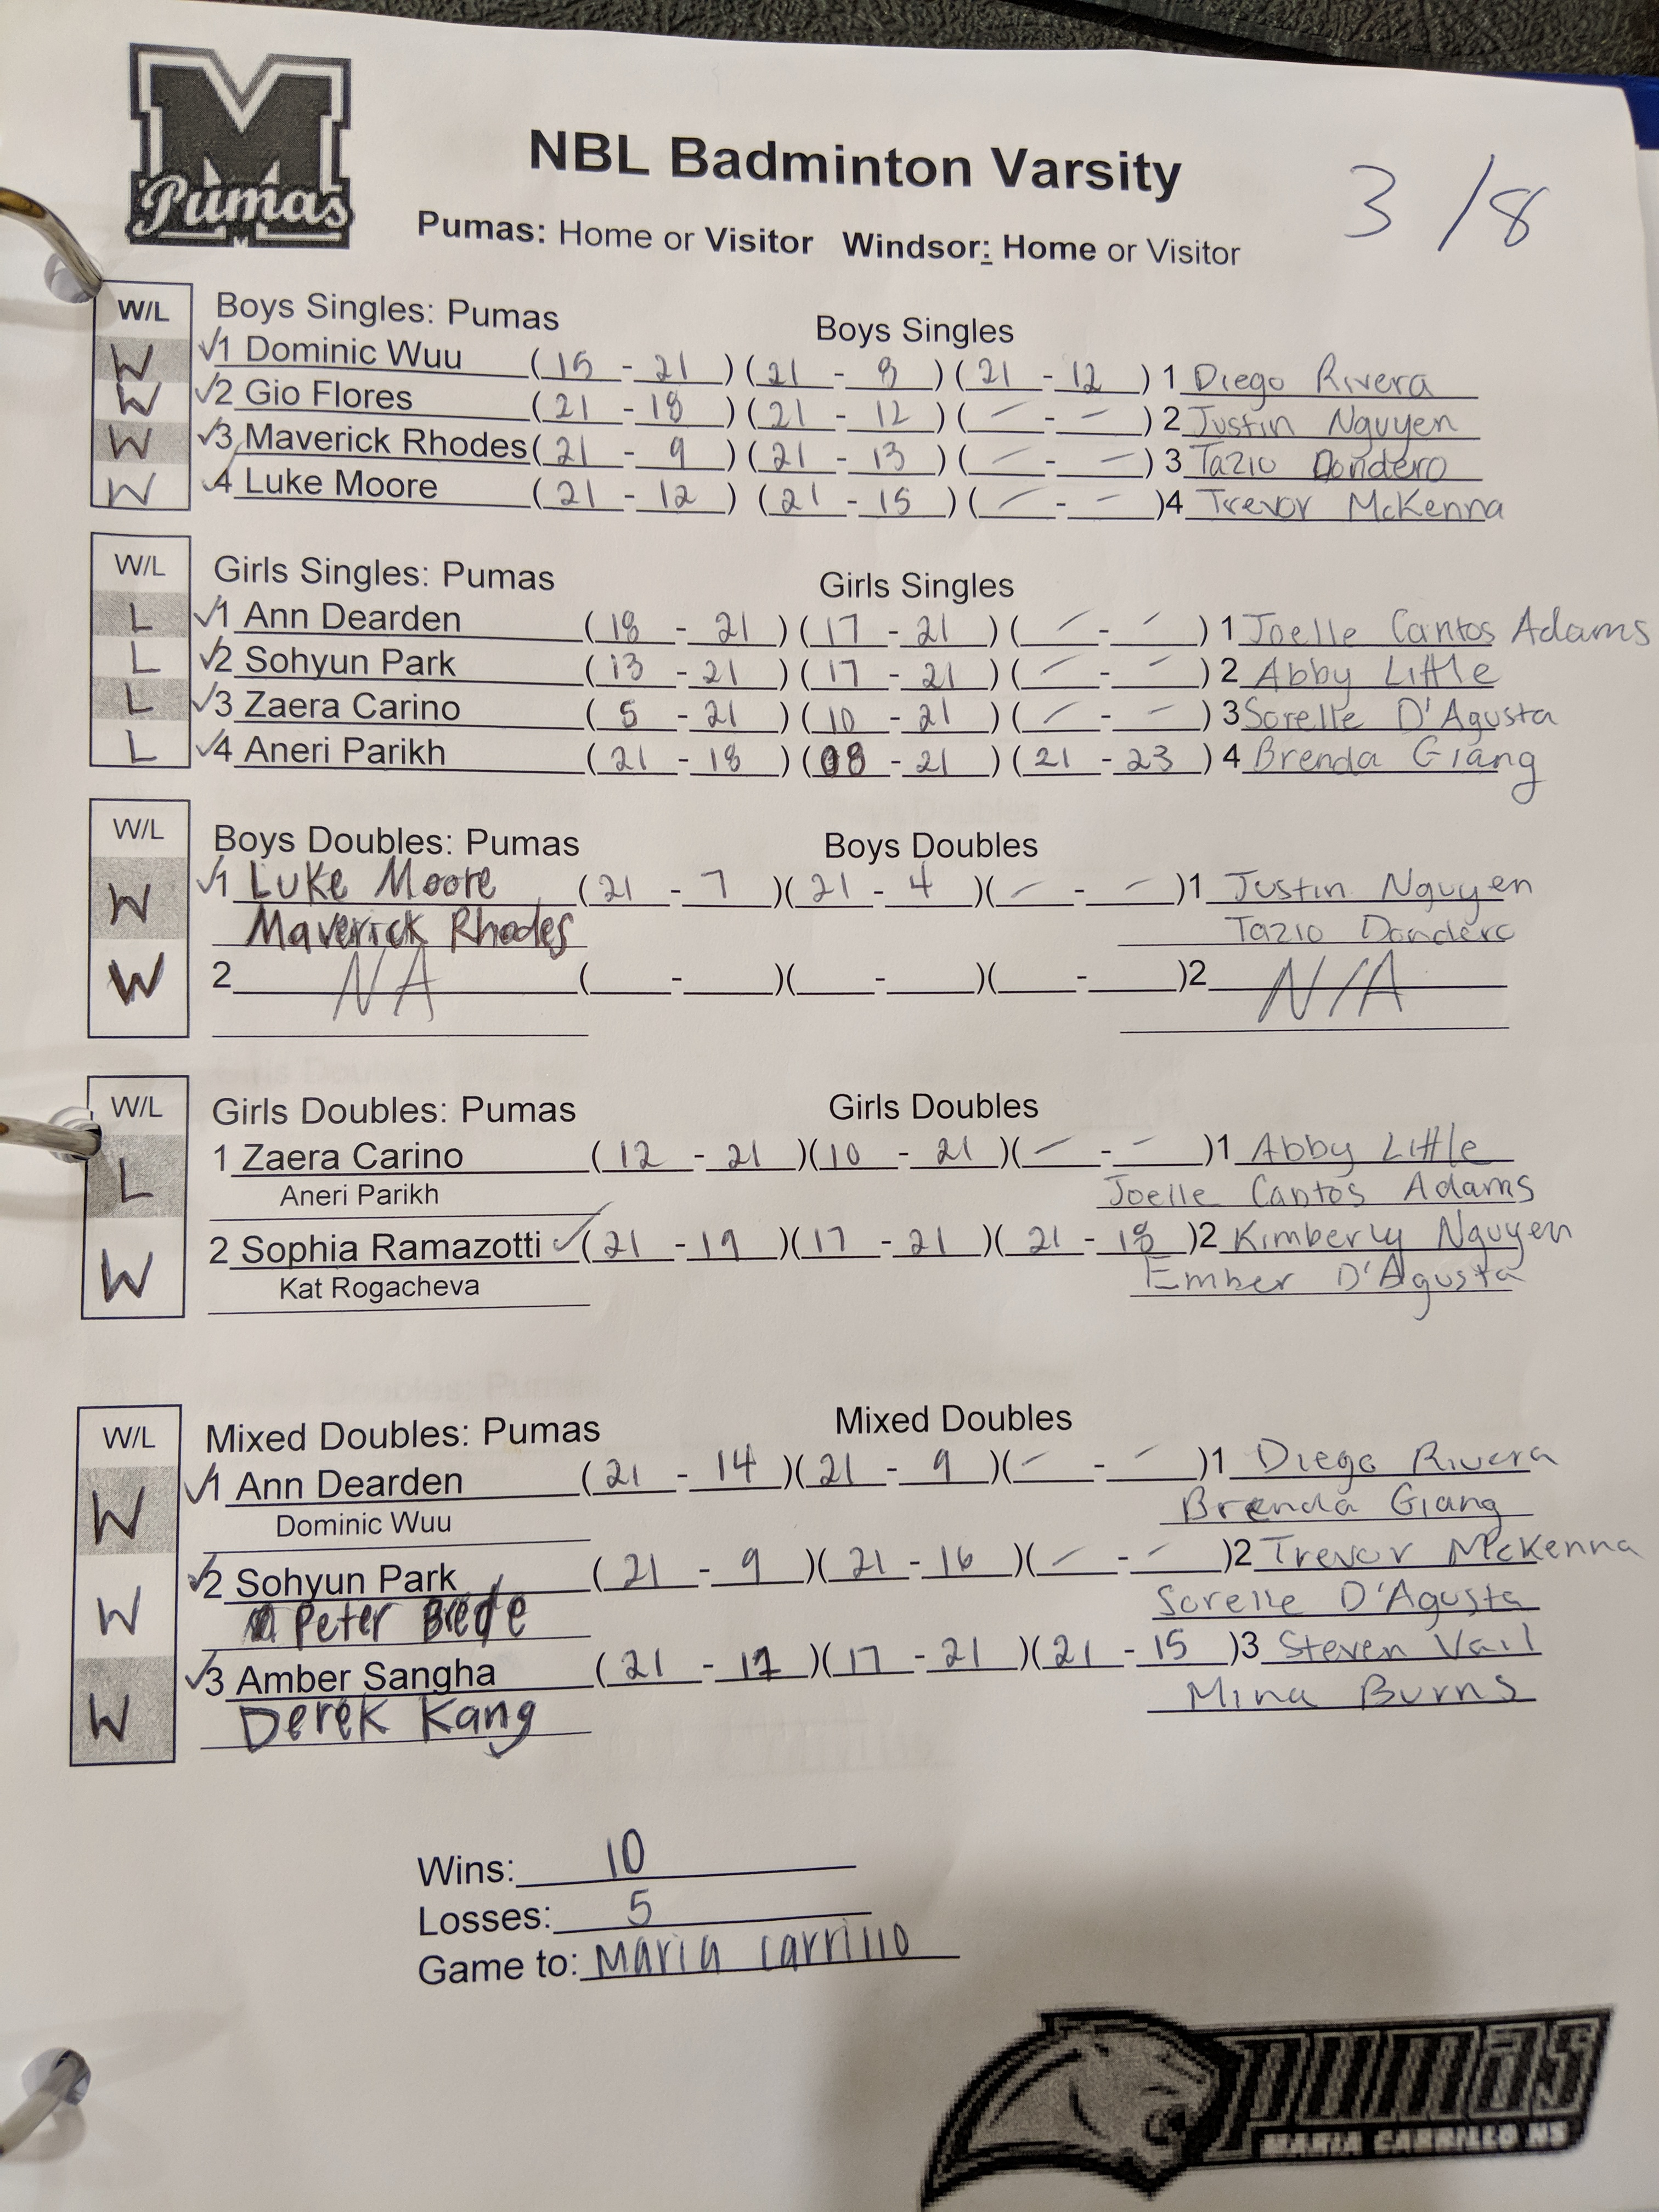 M
Pumas
NBL Badminton Varsity
3/8
Pumas: Home or Visitor Windsor: Home or Visitor
W/L Boys Singles: Pumas Boys Singles
W ✓1 Dominic Wuu (15 - 21) (21 - 8) (21 - 12) 1 Diego Rivera
W ✓2 Gio Flores (21 - 18) (21 - 12) (— - —) 2 Justin Nguyen
W ✓3 Maverick Rhodes (21 - 9) (21 - 13) (— - —) 3 Tazio Dondero
W ✓4 Luke Moore (21 - 12) (21 - 15) (— - —) 4 Trevor McKenna
W/L Girls Singles: Pumas Girls Singles
L ✓1 Ann Dearden (18 - 21) (17 - 21) (— - —) 1 Joelle Cantos Adams
L ✓2 Sohyun Park (13 - 21) (17 - 21) (— - —) 2 Abby Little
L ✓3 Zaera Carino (5 - 21) (10 - 21) (— - —) 3 Sorelle D'Agusta
L ✓4 Aneri Parikh (21 - 18) (08 - 21) (21 - 23) 4 Brenda Giang
W/L Boys Doubles: Pumas Boys Doubles
W ✓1 Luke Moore (21 - 7) (21 - 4) (— - —) 1 Justin Nguyen
Maverick Rhodes Tazio Dondero
W 2 NA ( - ) ( - ) ( - ) 2 N/A
W/L Girls Doubles: Pumas Girls Doubles
L 1 Zaera Carino (12 - 21) (10 - 21) (— - —) 1 Abby Little
Aneri Parikh Joelle Cantos Adams
W 2 Sophia Ramazotti ✓ (21 - 19) (17 - 21) (21 - 18) 2 Kimberly Nguyen
Kat Rogacheva Ember D'Agusta
W/L Mixed Doubles: Pumas Mixed Doubles
W ✓1 Ann Dearden (21 - 14) (21 - 9) (— - —) 1 Diego Rivera
Dominic Wuu Brenda Giang
W ✓2 Sohyun Park (21 - 9) (21 - 16) (— - —) 2 Trevor McKenna
Peter Sorelle D'Agusta
W ✓3 Amber Sangha (21 - ) (17 - 21) (21 - 15) 3 Steven Vail
Derek Kang Mina Burns
Wins: 10
Losses: 5
Game to: Maria Carrillo
PUMAS
MARIA CARRILLO HS